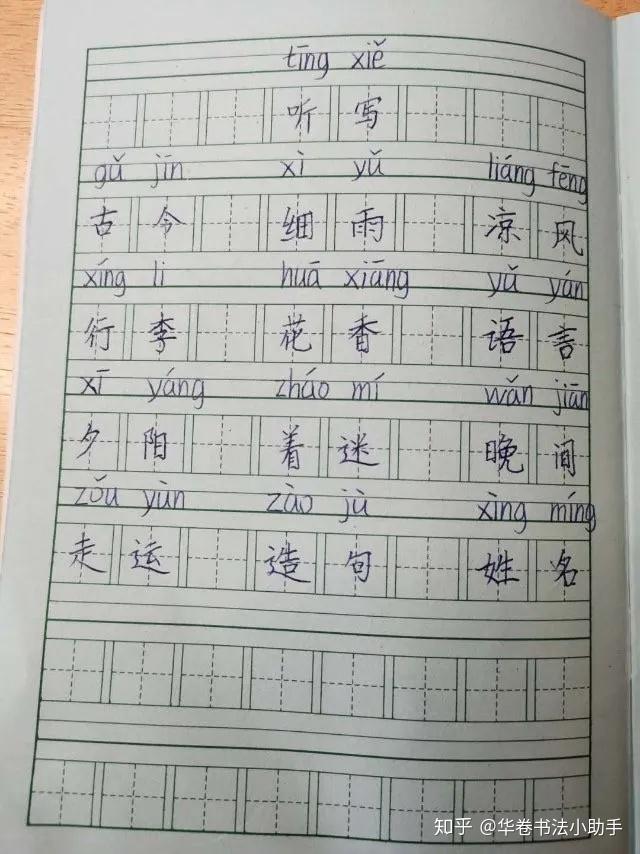 tīng xiě
听 写
gǔ jīn xì yǔ liáng fēng
古 今 细 雨 凉 风
xíng li huā xiāng yǔ yán
行 李 花 香 语 言
xī yáng zháo mí wǎn jiān
夕 阳 着 迷 晚 间
zǒu yùn zào jù xìng míng
走 运 造 句 姓 名
知乎 @华卷书法小助手